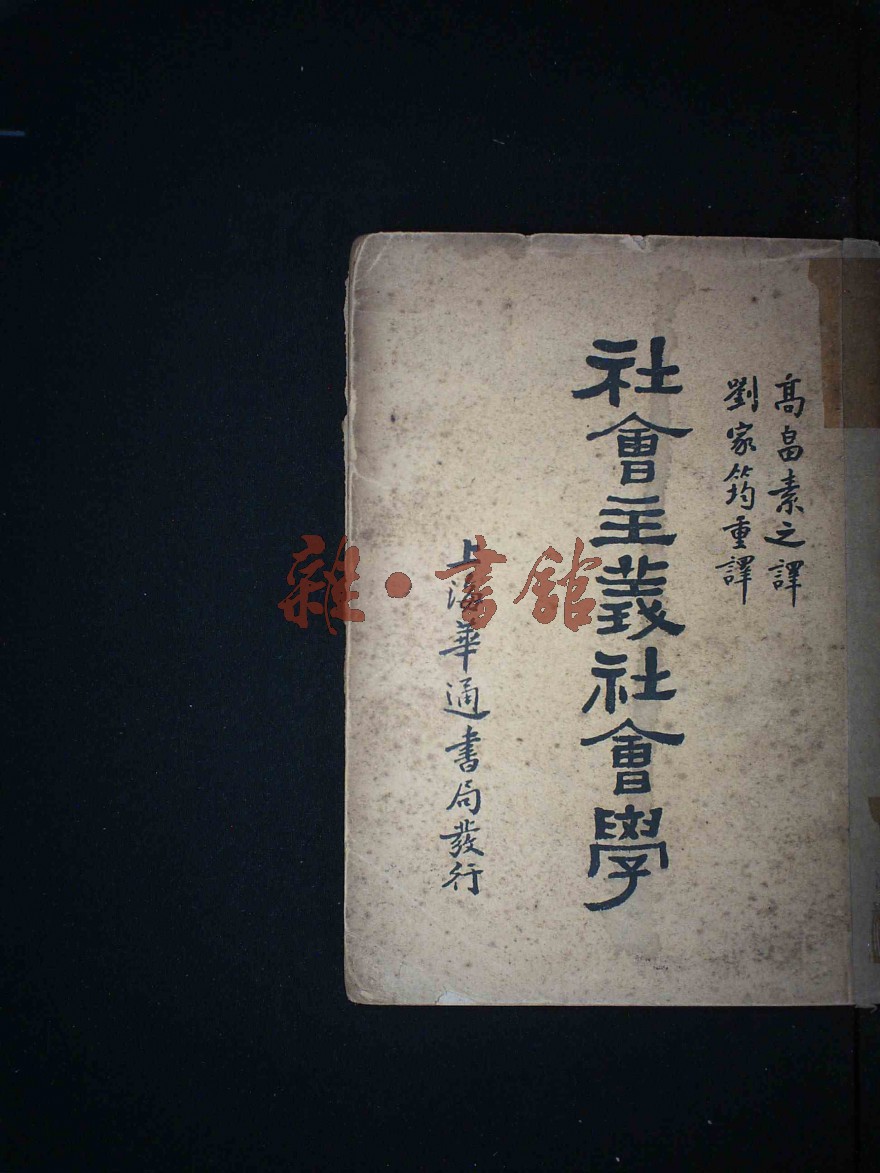 高畠素之譯
劉家筠重譯
社會主義社會學
上海華通書局發行
雜·書館